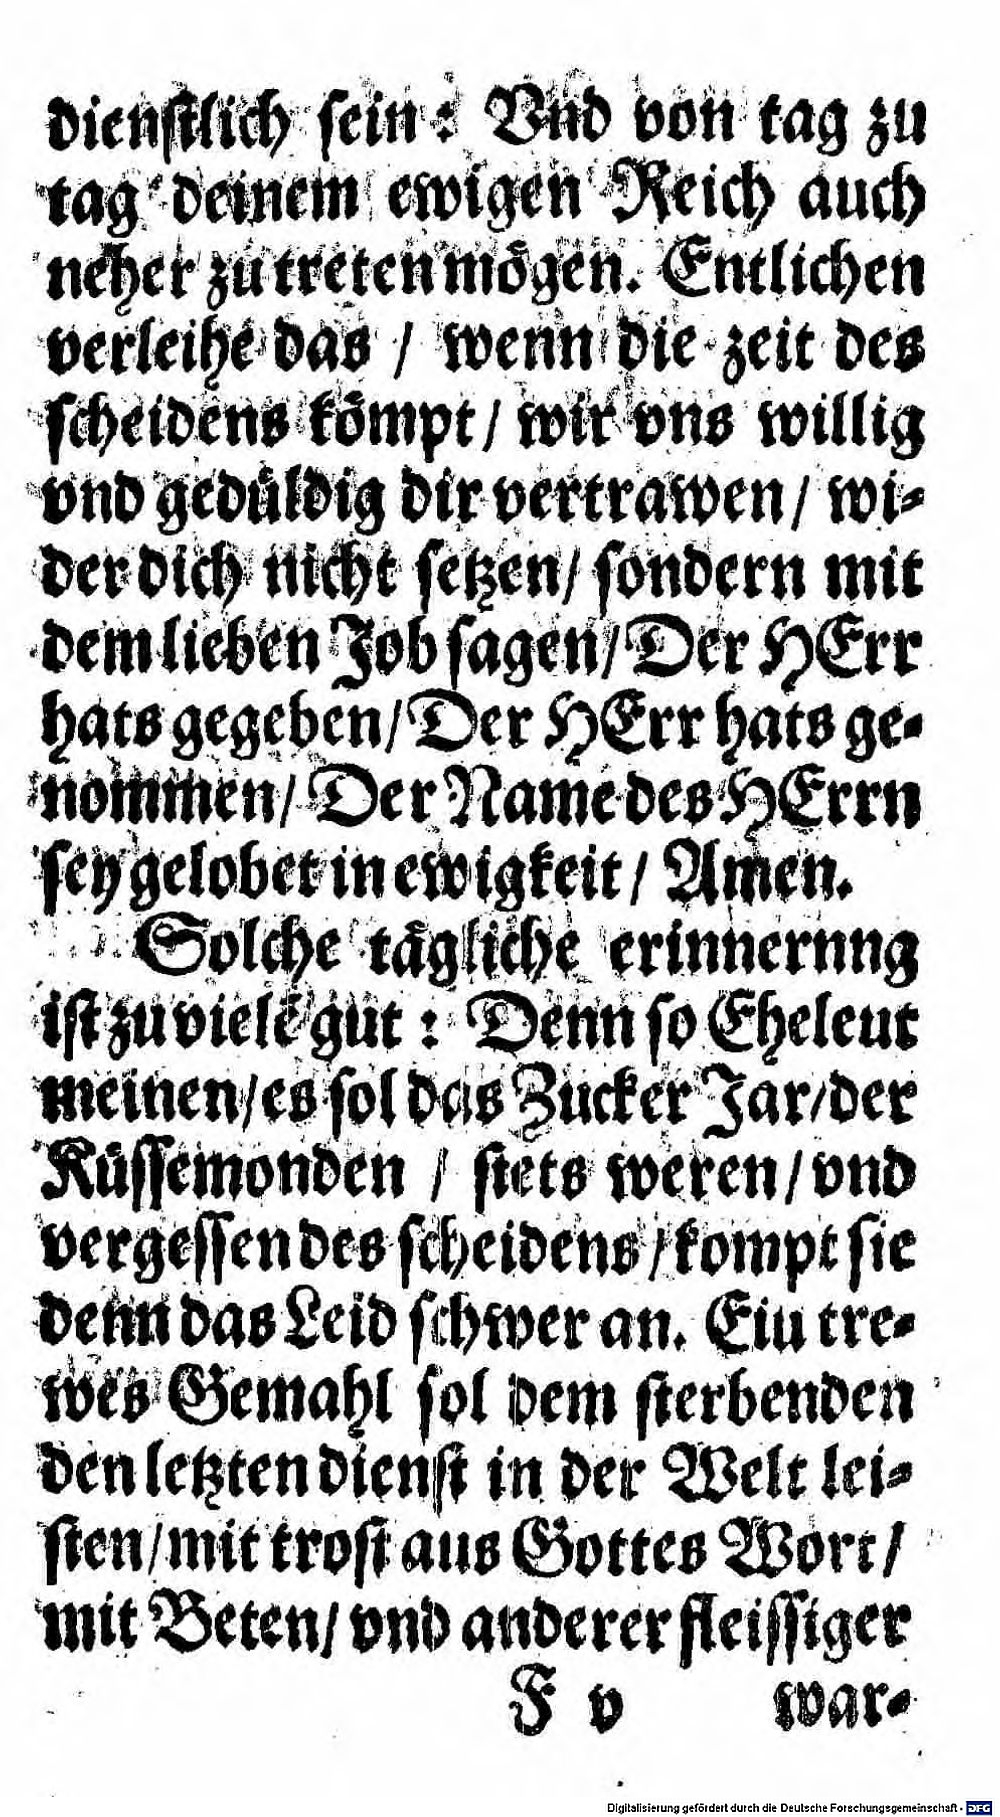 dienstlich sein : Vnd von tag zu
tag deinem ewigen Reich auch
neher zu treten mögen. Entlichen
verleihe das / wenn die zeit des
scheidens kömpt / wir vns willig
vnd gedültig dir vertrawen / wi-
der dich nicht setzen / sondern mit
dem lieben Job sagen / Der HErr
hats gegeben / Der HErr hats ge-
nommen / Der Name des HErrn
sey gelobet in ewigkeit / Amen.
Solche tägliche erinnernng
ist zu viele gut : Denn so Eheleut
meinen / es sol das Zucker Jar / der
Küssemonden / stets weren / vnd
vergessen des scheidens / kompt sie
denn das Leid schwer an. Eiu tre-
wes Gemahl sol dem sterbenden
den letzten dienst in der Welt lei-
sten / mit trost aus Gottes Wort /
mit Beten / vnd anderer fleissiger
F v war-
Digitalisierung gefördert durch die Deutsche Forschungsgemeinschaft - DFG